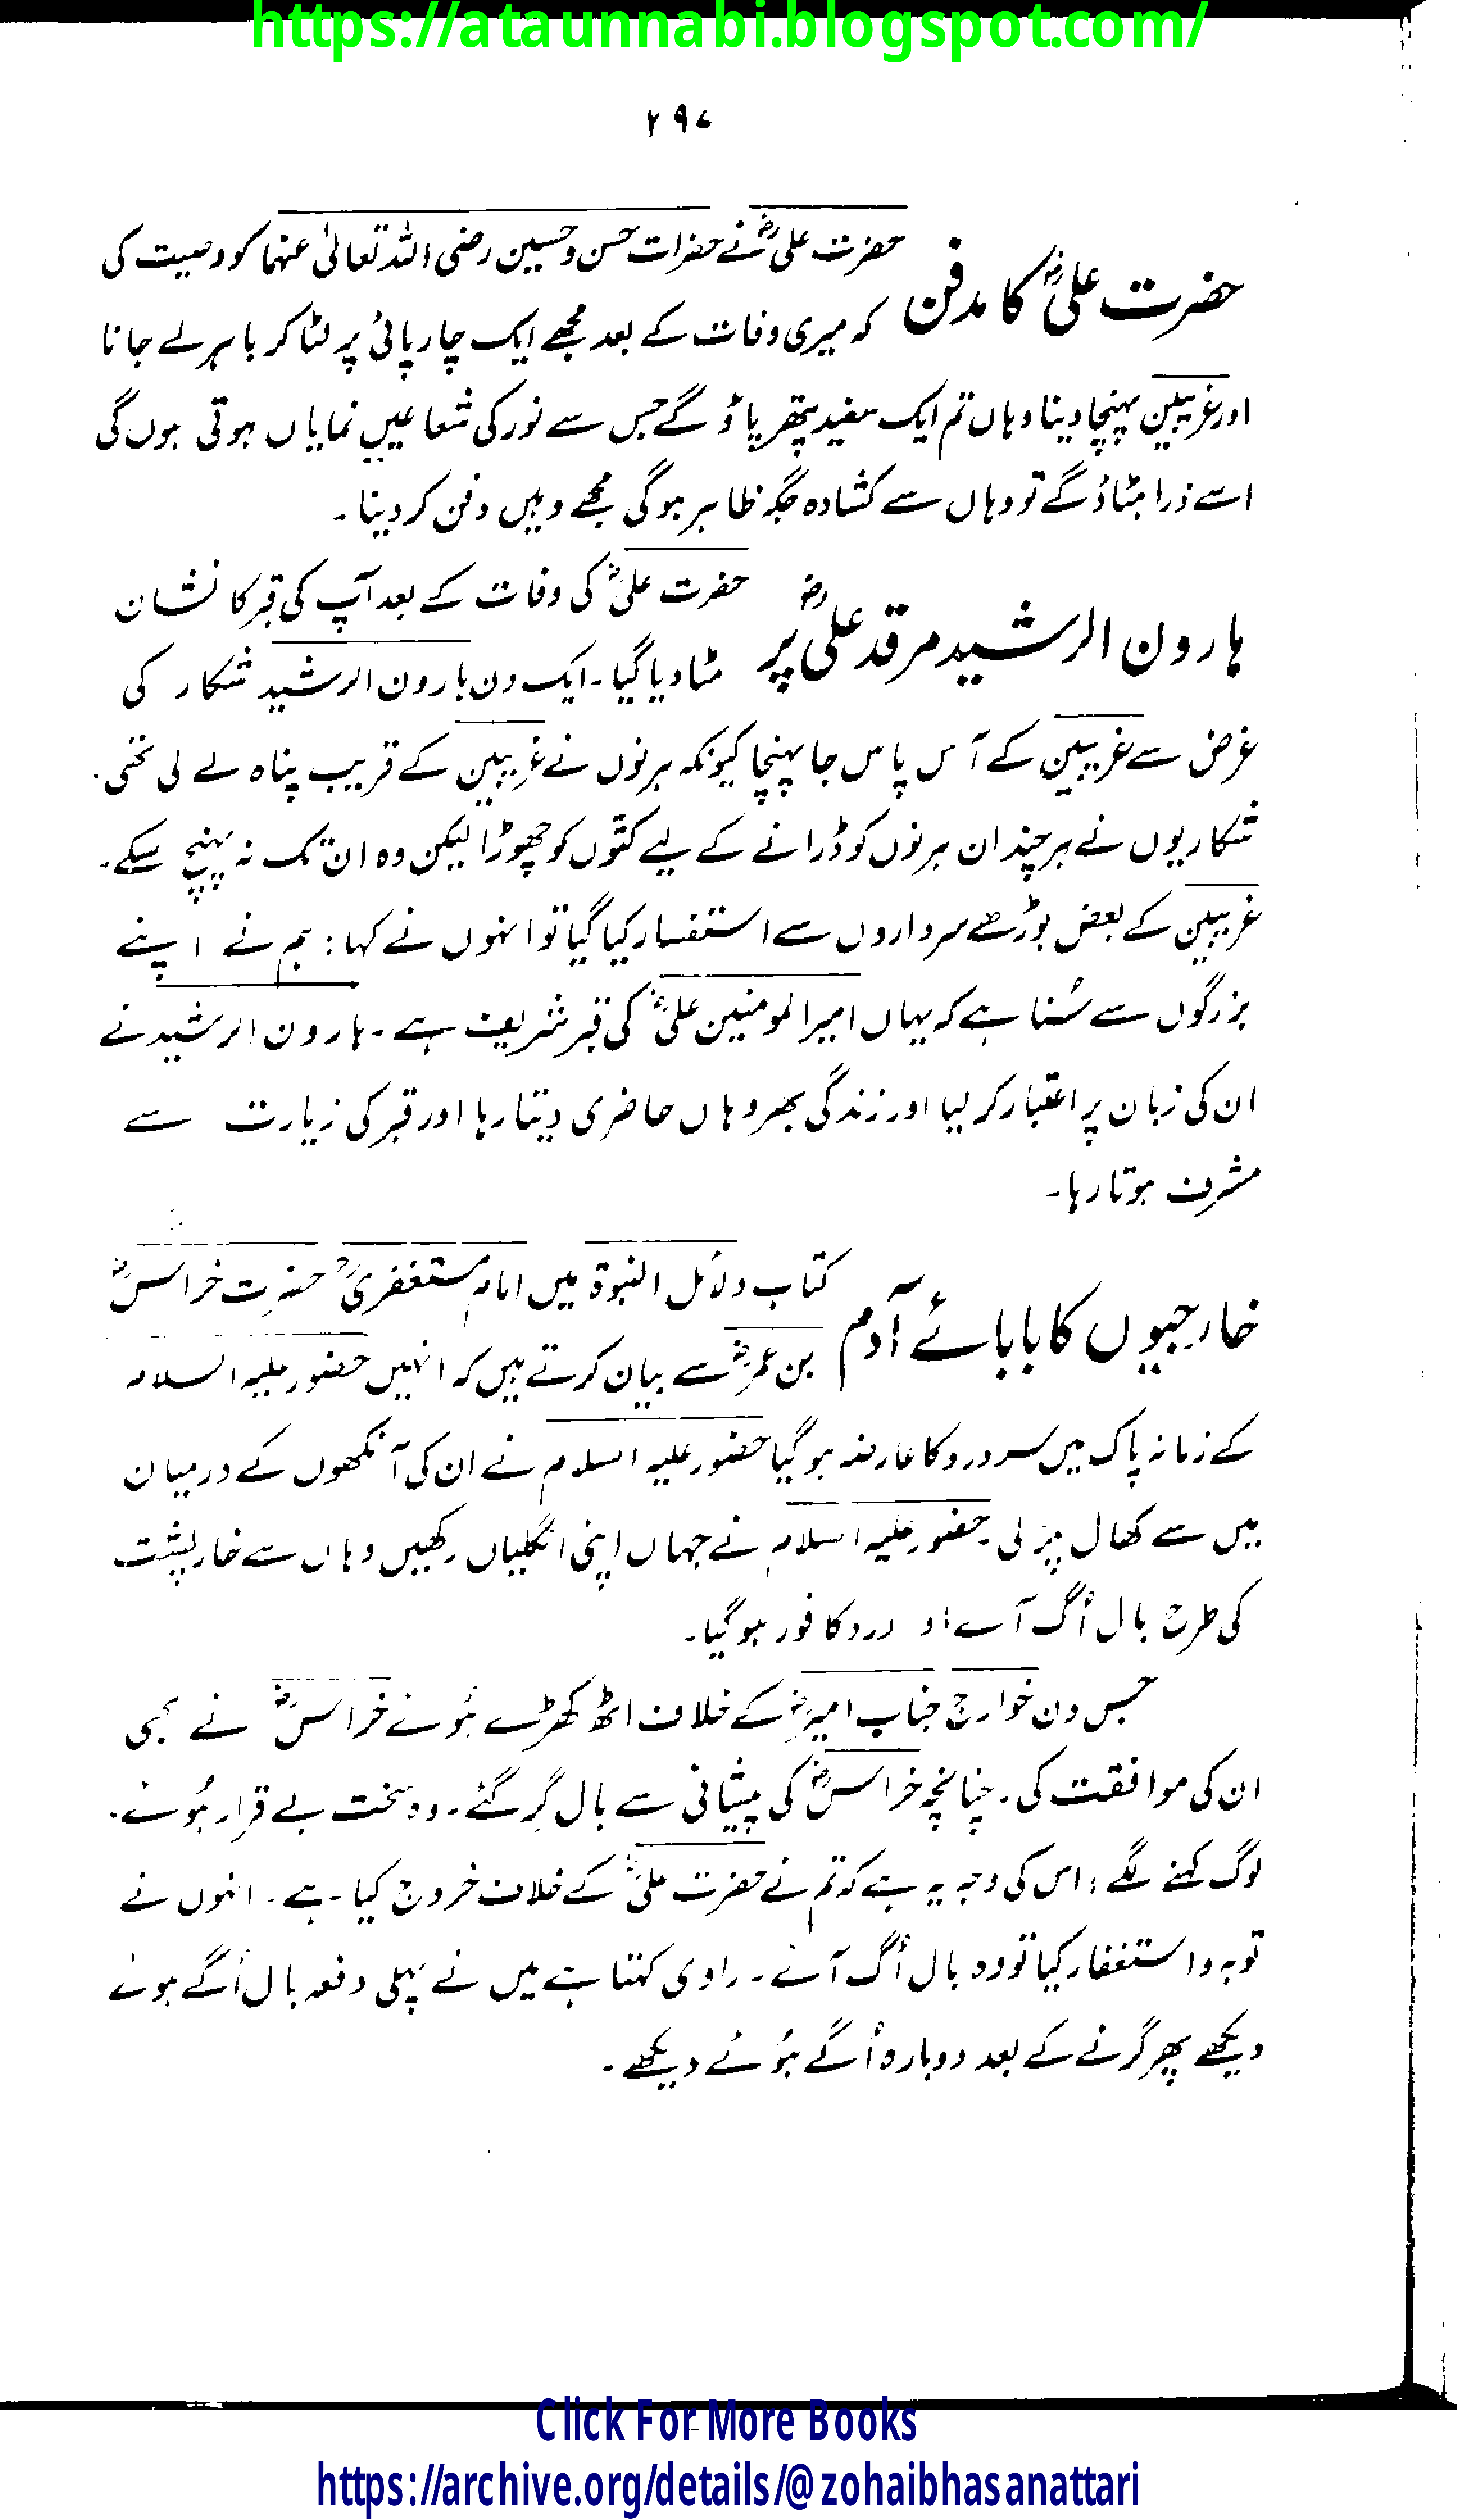 https://ataunnabi.blogspot.com/
۲۹۷
حضرت علیؓ کا مدفن
حضرت علیؓ نے حضرات حسن و حسین رضی اللہ تعالیٰ عنہما کو وصیت کی
کہ میری وفات کے بعد مجھے ایک چارپائی پر لٹا کر باہر لے جانا
اور غریبین پہنچا دینا وہاں تم ایک سفید پتھر پاؤ گے جس سے نور کی شعاعیں نمایاں ہوتی ہوں گی
اسے ذرا ہٹاؤ گے تو وہاں سے کشادہ جگہ ظاہر ہوگی مجھے وہیں دفن کر دینا۔
ہارون الرشید مرقد علیؓ پر
حضرت علیؓ کی وفات کے بعد آپ کی قبر کا نشان
مٹا دیا گیا۔ ایک دن ہارون الرشید شکار کی
غرض سے غریبین کے آس پاس جا پہنچا کیونکہ ہرنوں نے غریبین کے قریب پناہ لے لی تھی۔
شکاریوں نے ہر چند ان ہرنوں کو ڈرانے کے لیے کتّوں کو چھوڑا لیکن وہ ان تک نہ پہنچ سکے۔
غریبین کے بعض بوڑھے سرداروں سے استفسار کیا گیا تو انہوں نے کہا: ہم نے اپنے
بزرگوں سے سُنا ہے کہ یہاں امیر المومنین علیؓ کی قبر شریف ہے۔ ہارون الرشید نے
ان کی زبان پر اعتبار کر لیا اور زندگی بھر وہاں حاضری دیتا رہا اور قبر کی زیارت سے
مشرف ہوتا رہا۔
خارجیوں کا بابائے آدم
کتاب دلائل النبوۃ میں امام مستغفریؒ حضرت خراسؓ
بن عمرؓ سے بیان کرتے ہیں کہ انہیں حضور علیہ السلام
کے زمانہ پاک میں سر درد کا عارضہ ہوگیا حضور علیہ السلام نے ان کی آنکھوں کے درمیان
میں سے کھال پڑ لی۔ حضور علیہ السلام نے جہاں اپنی انگلیاں رکھیں وہاں سے خارپشت
کی طرح بال اُگ آئے اور درد کافور ہوگیا۔
جس دن خوارج جناب امیرؓ کے خلاف اٹھ کھڑے ہُوئے خراسؓ نے بھی
ان کی موافقت کی۔ چنانچہ خراسؓ کی پیشانی سے بال گِر گئے۔ وہ سخت بے قرار ہُوئے۔
لوگ کہنے لگے: اس کی وجہ یہ ہے کہ تم نے حضرت علیؓ کے خلاف خروج کیا ہے۔ انہوں نے
توبہ و استغفار کیا تو وہ بال اُگ آئے۔ راوی کہتا ہے میں نے پہلی دفعہ بال اُگے ہوئے
دیکھے پھر گرنے کے بعد دوبارہ اُگے ہُوئے دیکھے۔
Click For More Books
https://archive.org/details/@zohaibhasanattari